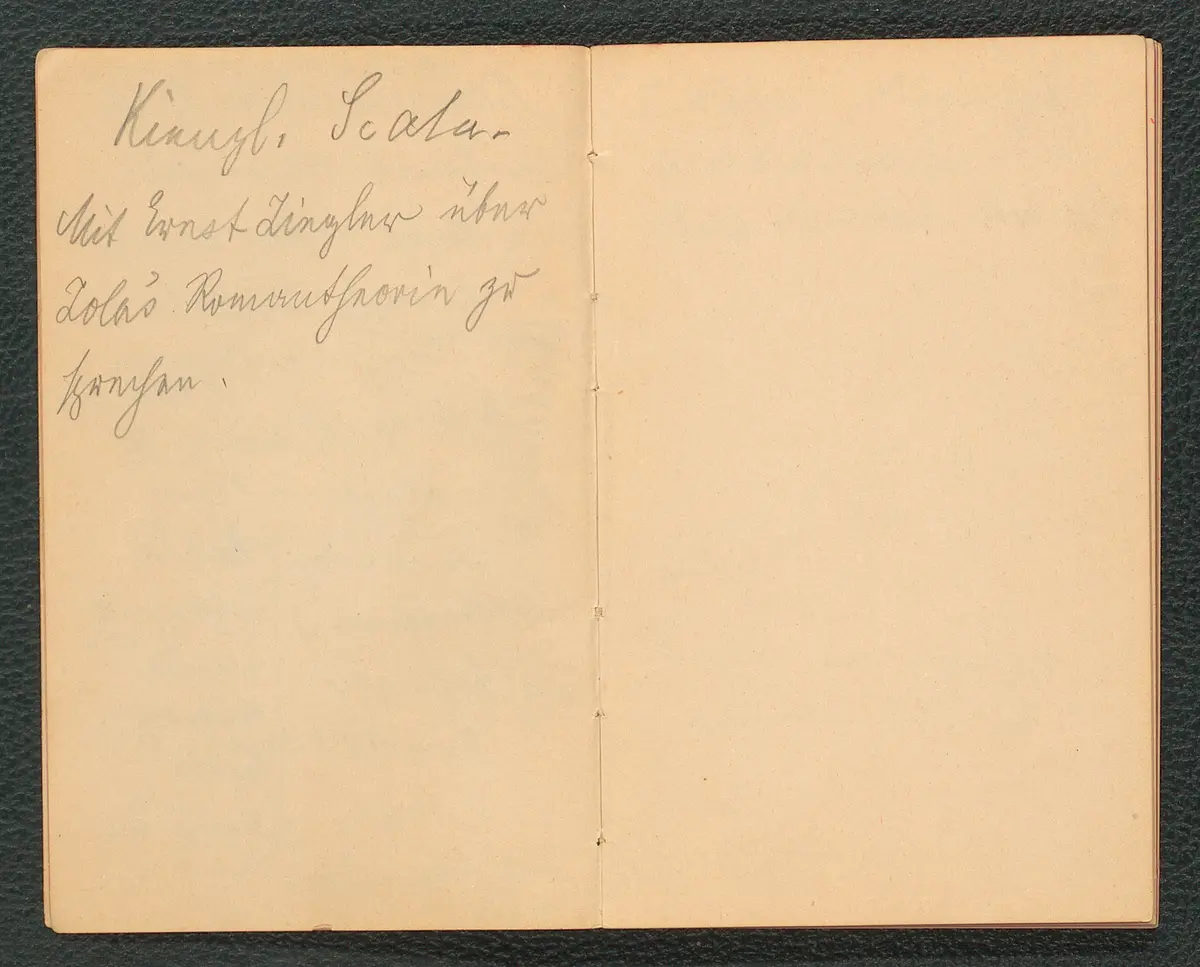 Kienzl. Scala.
Mit Ernst Ziegler über
Zola's Romantheorie zu
sprechen.